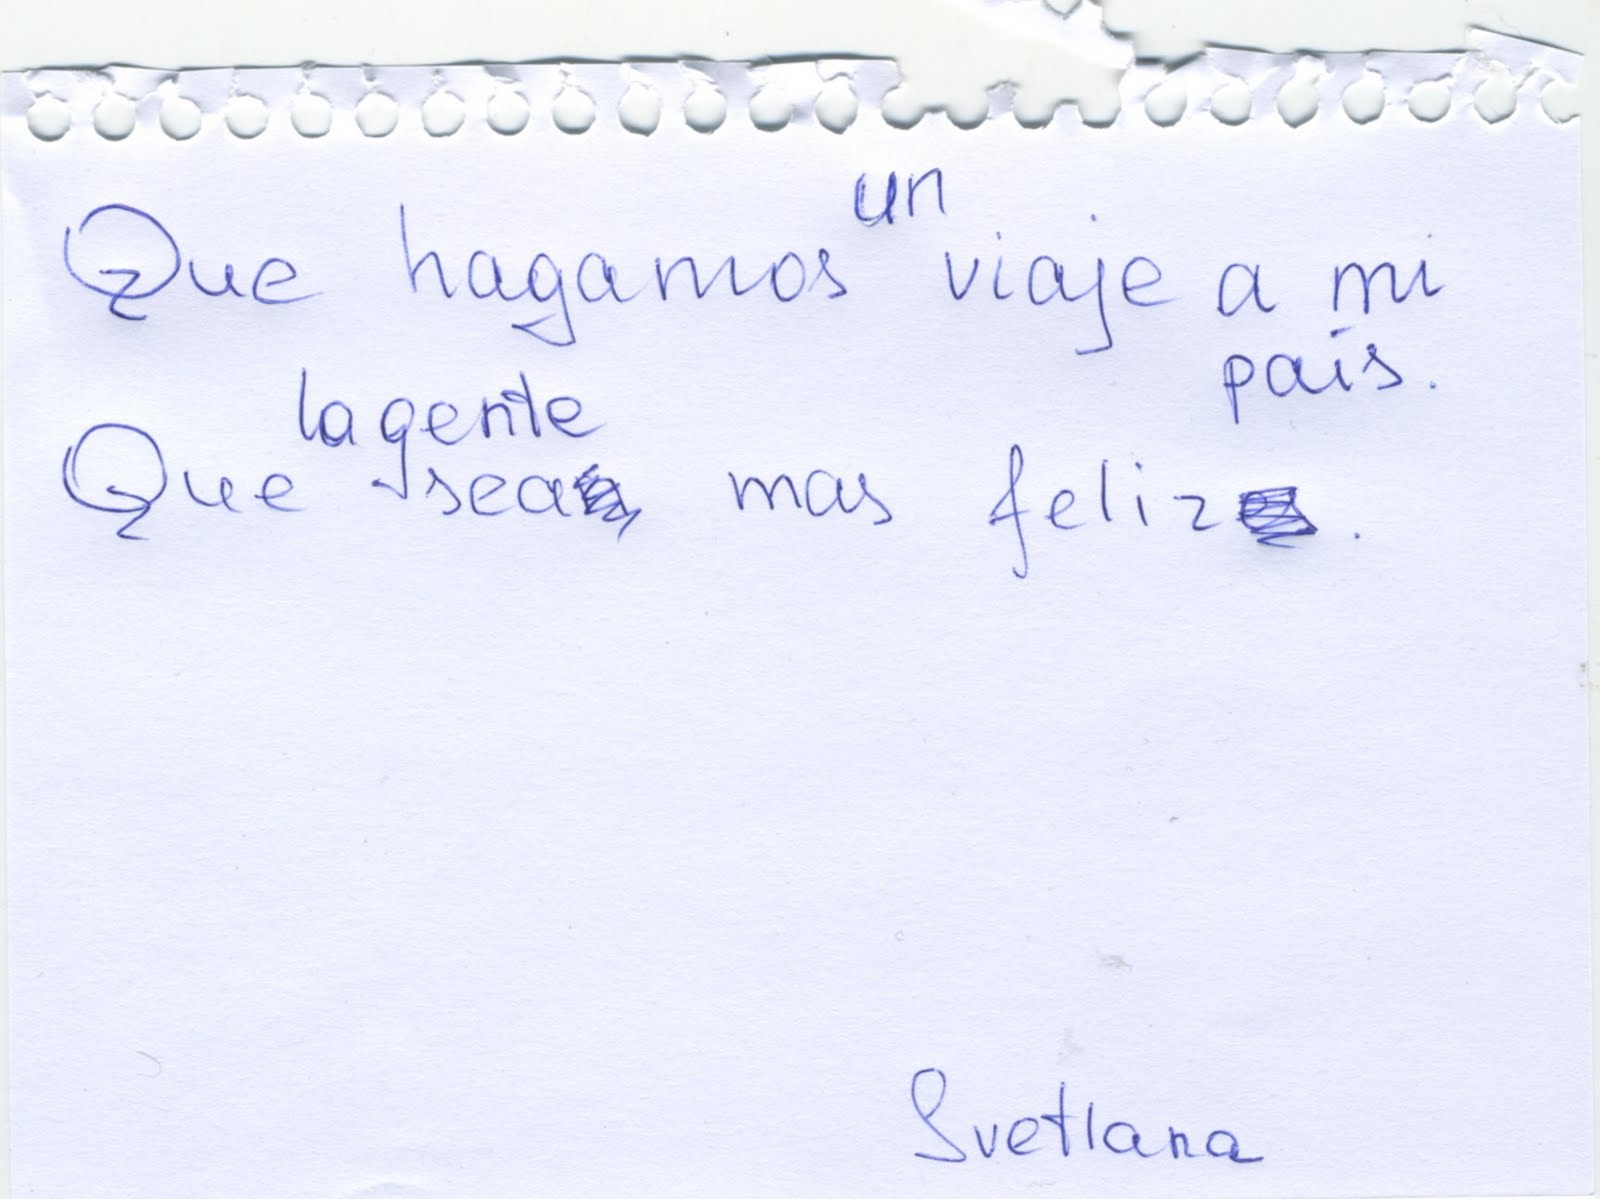 Que hagamos un viaje a mi
país.
Que la gente sea mas feliz.
Svetlana